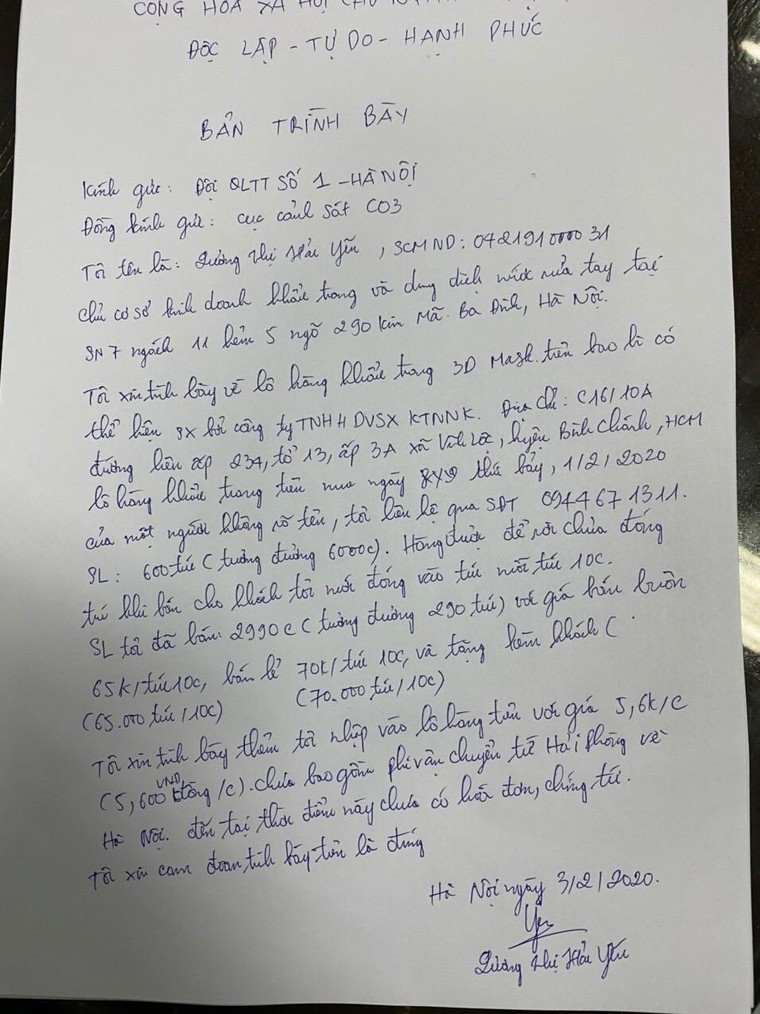 CỘNG HÒA XÃ HỘI CHỦ
ĐỘC LẬP - TỰ DO - HẠNH PHÚC
BẢN TRÌNH BÀY
Kính gửi: Đội QLTT SỐ 1 - HÀ NỘI
Đồng kính gửi: cục cảnh sát C03
Tôi tên là: Lương Thị Hải Yến, SCMND: 042191000031
chủ cơ sở kinh doanh khẩu trang và dung dịch nước rửa tay tại
SN 7 ngách 11 hẻm 5 ngõ 290 Kim Mã. Ba Đình, Hà Nội.
Tôi xin trình bày về lô hàng khẩu trang 3D Mask. trên bao bì có
thể hiện SX bởi công ty TNHH DVSX KTNNK. Địa chỉ: C16/10A
đường liên ấp 234, tổ 13, ấp 3A xã Vĩnh Lộc, huyện Bình Chánh, HCM
lô hàng khẩu trang trên mua ngày thứ bảy, 1/2/2020
của một người không rõ tên, tôi liên lạc qua SĐT 0944671311.
SL: 600 túi (tương đương 6000c). Hàng được để rời chưa đóng
túi khi bán cho khách tôi mới đóng vào túi mỗi túi 10c.
SL tôi đã bán: 2990c (tương đương 290 túi) với giá bán buôn
65k/túi 10c, bán lẻ 70k/túi 10c, và tặng kèm khách (
(65.000 túi/10c) (70.000 túi/10c)
Tôi xin trình bày thêm tôi nhập vào lô hàng trên với giá 5,6k/c
(5,600 VND đồng/c). chưa bao gồm phí vận chuyển từ Hải Phòng về
Hà Nội. đến tại thời điểm này chưa có hóa đơn, chứng từ.
Tôi xin cam đoan trình bày trên là đúng
Hà Nội ngày 3/2/2020.
Yến
Lương Thị Hải Yến